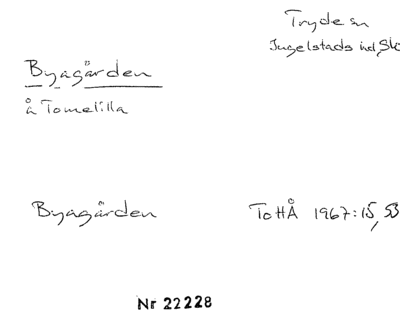 Tryde sn
Ingelstads hd, Sk
Byagården
å Tomelilla
Byagården
ToHÅ 1967:15, 53
Nr 22228